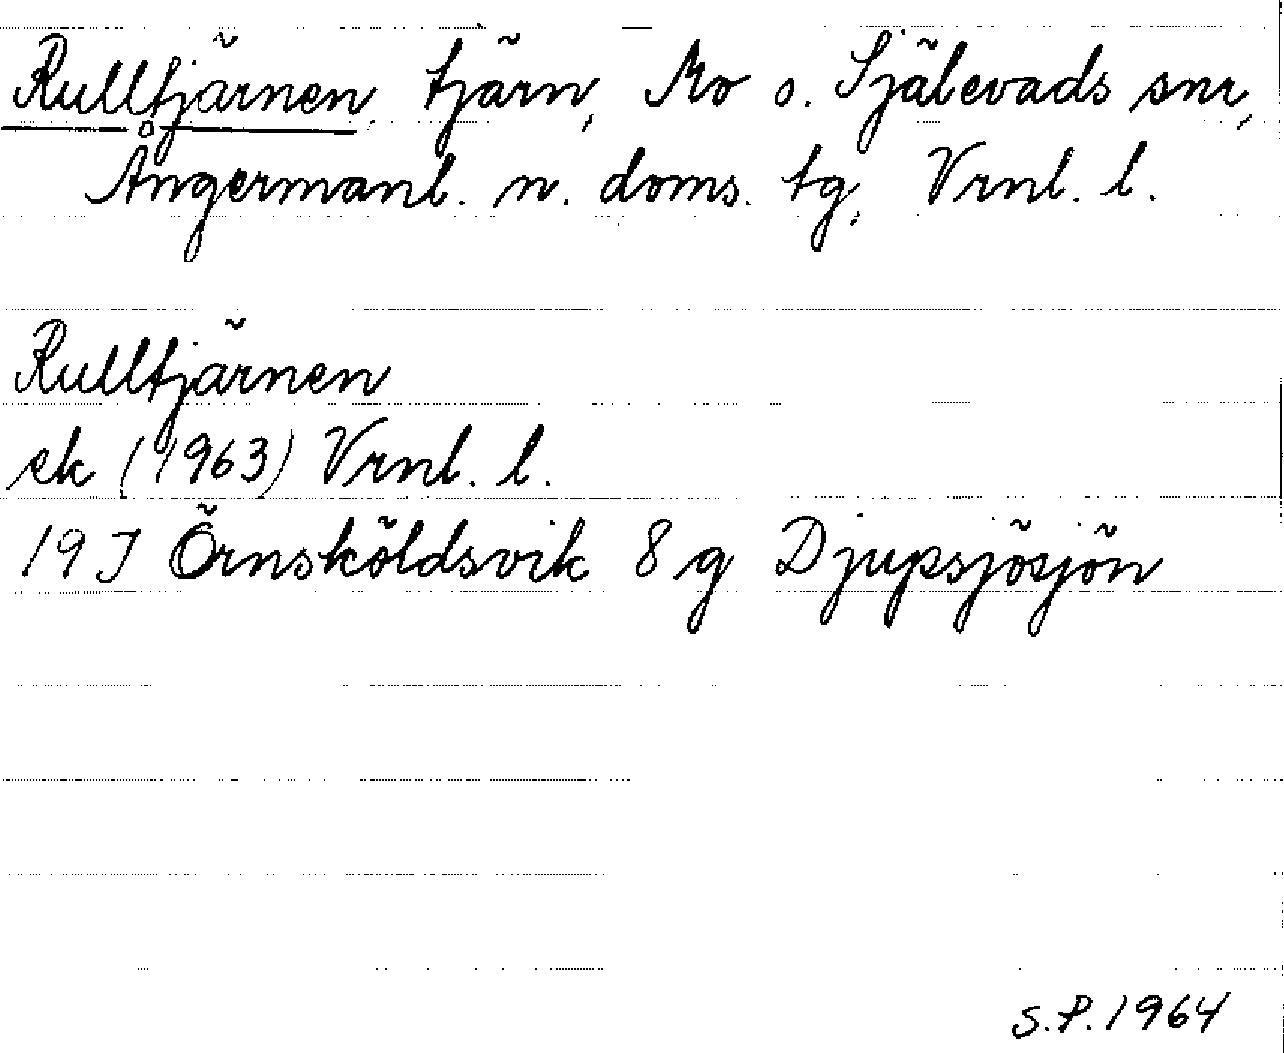 Rulltjärnen, tjärn, Mo o. Själevads snr,
Ångermanl. n. doms. tg, Vrnl. l.
Rulltjärnen
ek (1963) Vrnl. l.
19 J Örnsköldsvik 8 g Djupsjösjön
S.P. 1964